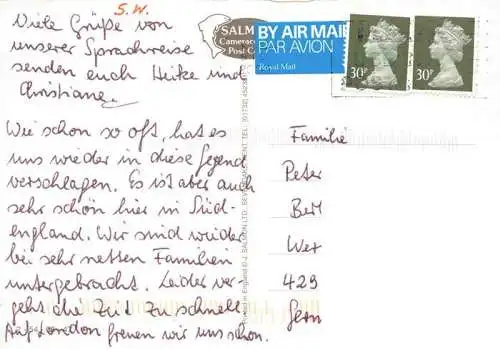 S.W.
Viele Grüße von
unserer Sprachreise
senden euch Heike und
Christiane
Wie schon so oft, hat es
uns wieder in diese Gegend
verschlagen. Es ist aber auch
sehr schön hier in Süd-
england. Wir sind wieder
bei sehr netten Familien
untergebracht. Leider ver-
geht die Zeit zu schnell.
Auf London freuen wir uns schon.
SALM
Camerac
Post C
BY AIR MAIL
PAR AVION
Royal Mail
30P
30P
Familie
Peter
Bert
Wex
429